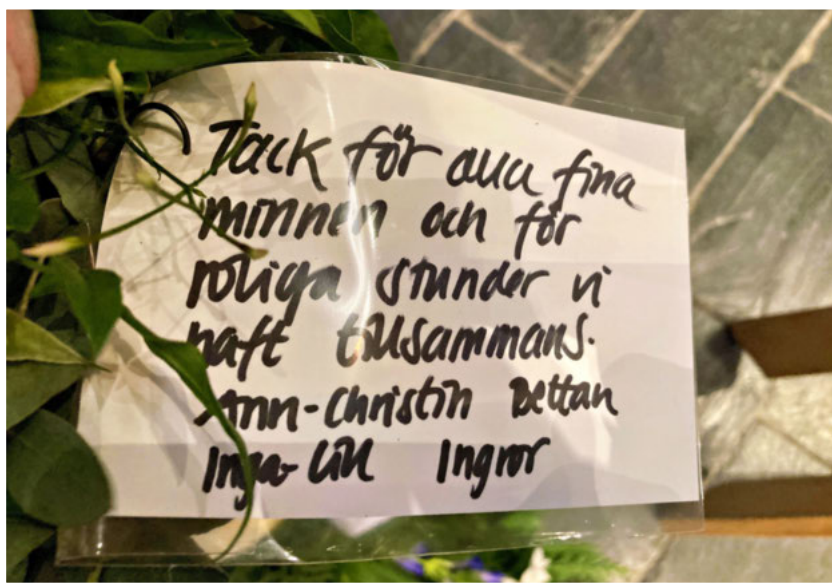 Tack för alla fina
minnen och för
roliga stunder vi
haft tillsammans.
Ann-Christin Bettan
Inga-Lill Ingror